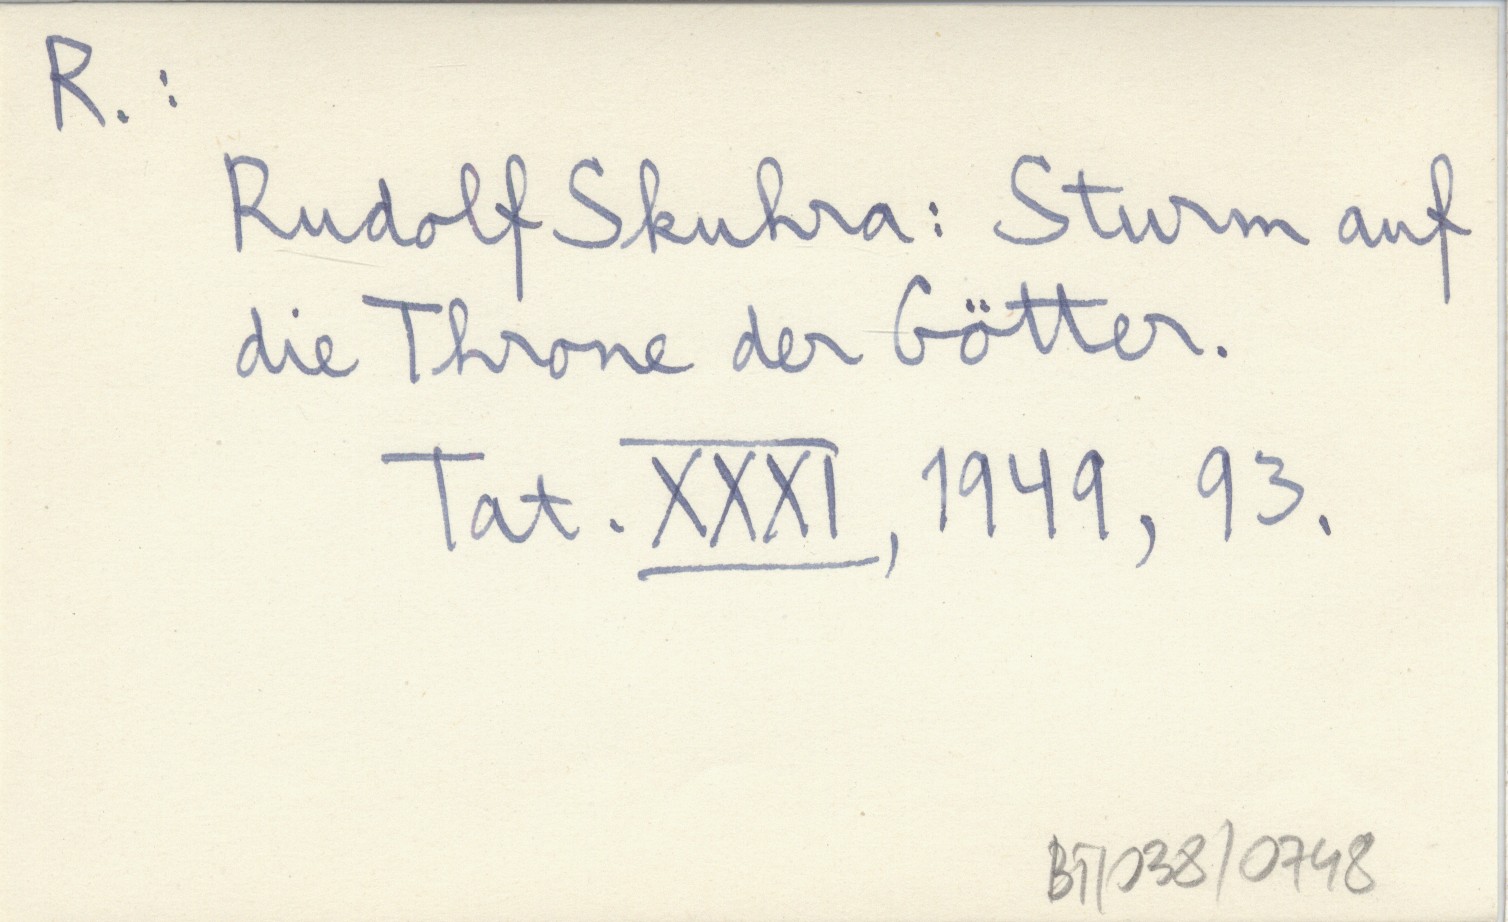 R. :
Rudolf Skuhra: Sturm auf
die Throne der Götter.
Tat. XXXI, 1949, 93.
BT/038/0748